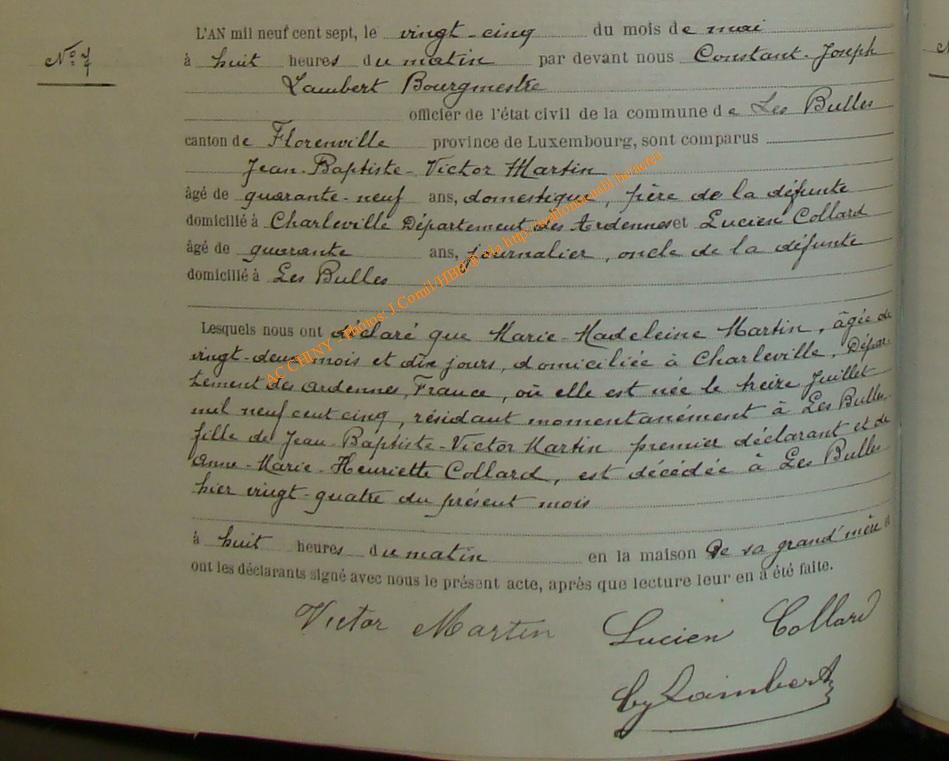 N° 7
L'AN mil neuf cent sept, le vingt-cinq du mois de mai
à huit heures du matin par devant nous Constant-Joseph
Lambert Bourgmestre
officier de l'état civil de la commune de Les Bulles
canton de Florenville province de Luxembourg, sont comparus
Jean-Baptiste-Victor Martin
âgé de quarante-neuf ans, domestique, père de la défunte
domicilié à Charleville Département des Ardennes et Lucien Collard
âgé de quarante ans, journalier, oncle de la défunte
domicilié à Les Bulles
Lesquels nous ont déclaré que Marie-Madeleine Martin, âgée de
vingt-deux mois et dix jours, domiciliée à Charleville, Dépar-
tement des Ardennes, France, où elle est née le treize Juillet
mil neuf cent cinq, résidant momentanément à Les Bulles,
fille de Jean-Baptiste-Victor Martin premier déclarant et de
Anne-Marie-Henriette Collard, est décédée à Les Bulles
hier vingt-quatre du présent mois
à huit heures du matin en la maison de sa grand'mère et
ont les déclarants signé avec nous le présent acte, après que lecture leur en a été faite.
Victor Martin Lucien Collard
Lambert
AC CHINY - Photos: J.Comil/HIBE via